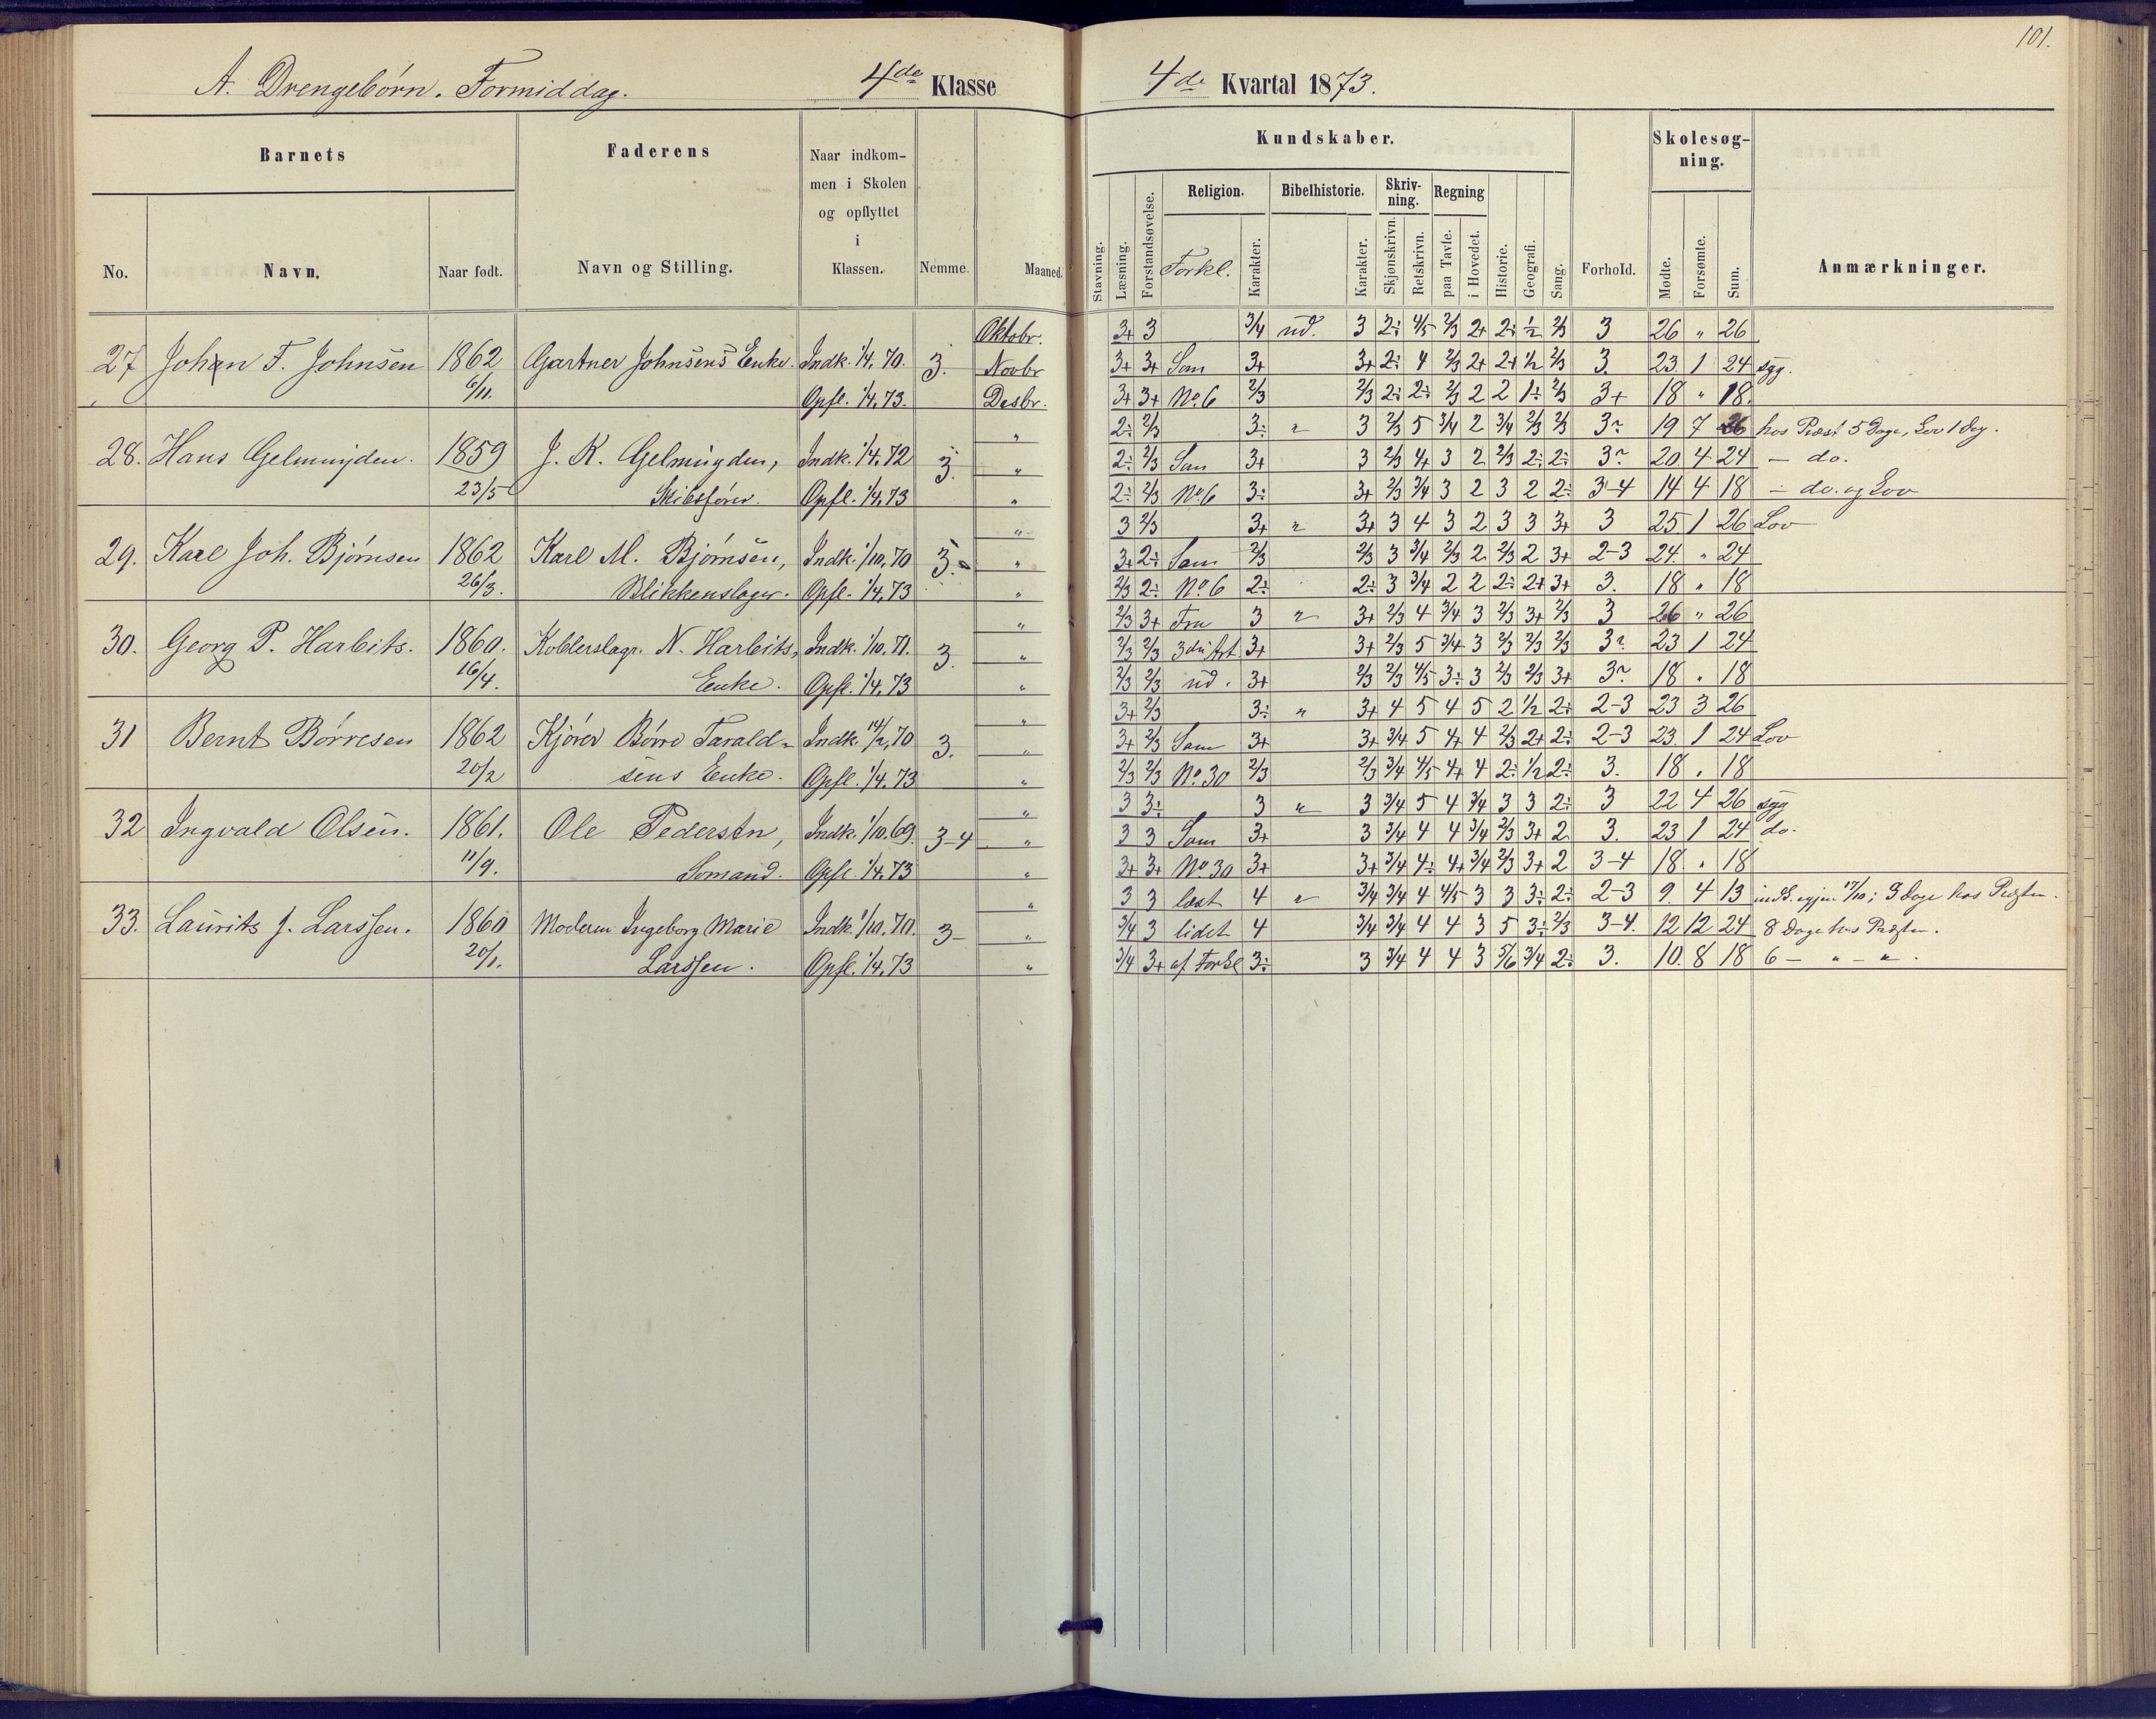 101.
A. Drengebørn. Formiddag. 4de Klasse
4de Kvartal 1873.
Barnets Faderens Naar indkommen i Skolen og opflyttet i Klassen. Nemme. Maaned.
No. Navn. Naar født. Navn og Stilling.
Kundskaber. Skolesøgning.
Stavning. Læsning. Forstandsøvelse. Religion. Bibelhistorie. Skrivning. Regning
Forkl. Karakter. Karakter. Skjønskrivn. Retskrivn. paa Tavle. i Hovedet. Historie. Geografi. Sang. Forhold. Mødte. Forsømte. Sum. Anmærkninger.
Oktobr. 3+ 3 3/4 ud. 3 2÷ 4/5 2/3 2+ 2÷ 1/2 2/3 3 26 " 26
27 Johan F. Johnsen 1862 Gartner Johnsens Enke. Indk. 1/4. 70. 3. Novbr 3+ 3+ Som 3+ 3+ 2÷ 4 2/3 2+ 2+ 1/2 2/3 3. 23. 1 24 syg.
6/11. Opfl. 1/4. 73. Desbr. 3+ 3+ No. 6 2/3 2/3 2÷ 2÷ 2/3 2 2 1÷ 2/3 3+ 18 " 18.
" 2÷ 2/3 3÷ " 3 2/3 5 3/4 2 3/4 2/3 2/3 19 7 26 hos Præst 5 Dage, Lov 1 Dag.
28. Hans Gelmuyden. 1859 J. K. Gelmuyden, Indk. 1/4. 72 3. " 2÷ 2/3 Som 3+ 3 2/3 4+ 3 2 2/3 2÷ 2÷ 20. 4 24 — do.
23/5 Skibsfører. Opfl. 1/4. 73 " 2÷ 2/3 No. 6 3÷ 3+ 2/3 3/4 3 2 3 2 2÷ 3-4 14 4 18 — do. og Lov
" 3 2/3 3+ " 3+ 3 4 3 2 3 3 3+ 3 25. 1 26 Lov
29. Karl Joh. Bjørnsen 1862 Karl M. Bjørnsen, Indk. 1/10. 70 3. " 3+ 2÷ Som 2/3 2/3 3 3/4 2/3 2 2/3 2 3+ 2-3 24. " 24
26/3. Blikkenslager. Opfl. 1/4. 73 " 2/3 2÷ No. 6 2÷ 2÷ 3 3/4 2 2 2÷ 2+ 3+ 3. 18 " 18
" 2/3 3+ Fra 3 " 3+ 2/3 4 3/4 3 2/3 3+ 2/3 3 26 " 26
30. Georg P. Harbits. 1860. Kobberslagr. N. Harbits, Indk. 1/10. 71. 3. " 2/3 2/3 3die Art. 3+ 3+ 2/3 5 3/4 3 2/3 2/3 2/3 23 1 24
16/4. Enke. Opfl. 1/4. 73 " 2/3 2/3 ud. 3+ 2/3 2/3 4/5 3÷ 3 2/3 2/3 3+ 18 " 18
" 3+ 2/3 3÷ " 3+ 4 5 4 5 2 1/2 2÷ 2-3 23 3 26
31 Bernt Børresen 1862 Kjører Børre Tarald- Indk. 14/2. 70 3. " 3+ 2/3 Som 3+ 3+ 3/4 5 4+ 4 2/3 2+ 2÷ 2-3 23. 1 24 Lov
20/2 sens Enke. Opfl. 1/4. 73 " 2/3 2/3 No. 30 2/3 2/3 3/4 4/5 4+ 4 2÷ 1/2 2÷ 3. 18 " 18
" 3 3÷ 3 " 3 3/4 5 4 3/4 3 3 2÷ 3 22 4 26 syg
32 Ingvald Olsen. 1861. Ole Pedersen, Indk. 1/10. 69. 3-4 " 3 3 Som 3+ 3 3/4 4 4 3/4 2/3 3+ 2 3. 23. 1 24 do.
11/9. Sømand. Opfl. 1/4. 73 " 3+ 3+ No. 30 3+ 3+ 3/4 4÷ 4+ 3/4 2/3 3+ 2 3-4 18. " 18
" 3 3 læst 4 " 3/4 3/4 4 4/5 3 3 3÷ 2÷ 2-3 9. 4 13 17/10; 3 Dage hos Præsten.
33. Laurits J. Larssen. 1860 Moderen Ingeborg Marie Indk. 1/10. 70. 3- " 3/4 3 lidet 4 3/4 3/4 4 4 3 5 3÷ 2/3 3-4. 12 12 24 8 Dage hos Præsten.
20/1. Larssen. Opfl. 1/4. 73 " 3/4 3+ af Forkl 3÷ 3 3/4 4 4 3 5/6 3/4 2÷ 3. 10. 8 18 6 — " — " .